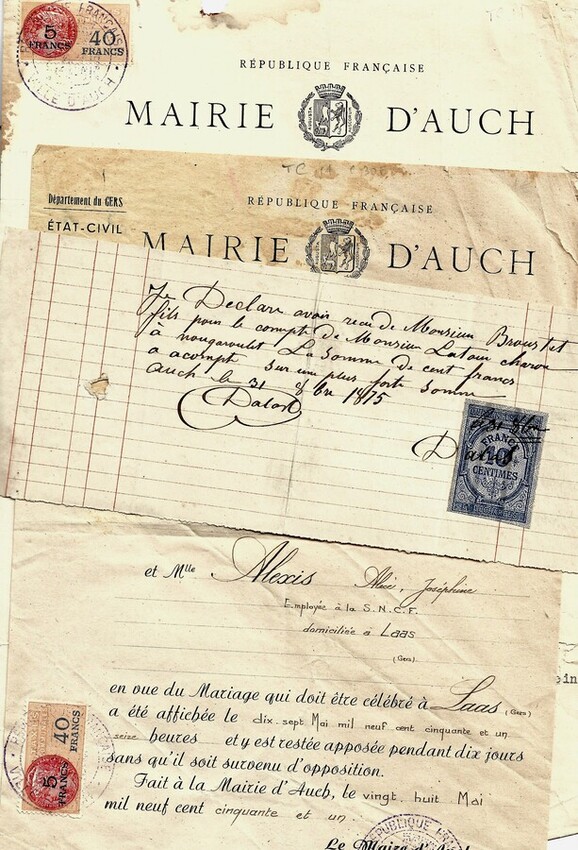 5
FRANCS
40
FRANCS
VILLE D'AUCH
RÉPUBLIQUE FRANÇAISE
MAIRIE D'AUCH
Département du GERS
ÉTAT-CIVIL
RÉPUBLIQUE FRANÇAISE
MAIRIE D'AUCH
Je Déclare avoir recu de Monsieur Broustet
fils pour le compte de Monsieur Latour charon
à nougaroulet La Somme de cent francs
a acompte Sur une plus forte Somme
auch le 31 8bre 1875
FRANCE
10
CENTIMES
et Mlle Alexis Joséphine
Employée à la S.N.C.F.
domiciliée à Laas
(Gers)
en vue du Mariage qui doit être célébré à Laas (Gers)
a été affichée le dix.sept Mai mil neuf cent cinquante et un
seize heures et y est restée apposée pendant dix jours
sans qu'il soit survenu d'opposition.
Fait à la Mairie d'Auch, le vingt huit Mai
mil neuf cent cinquante et un.
Le Maire d'
RÉPUBLIQUE FRANÇAISE
40
FRANCS
5
FRANCS